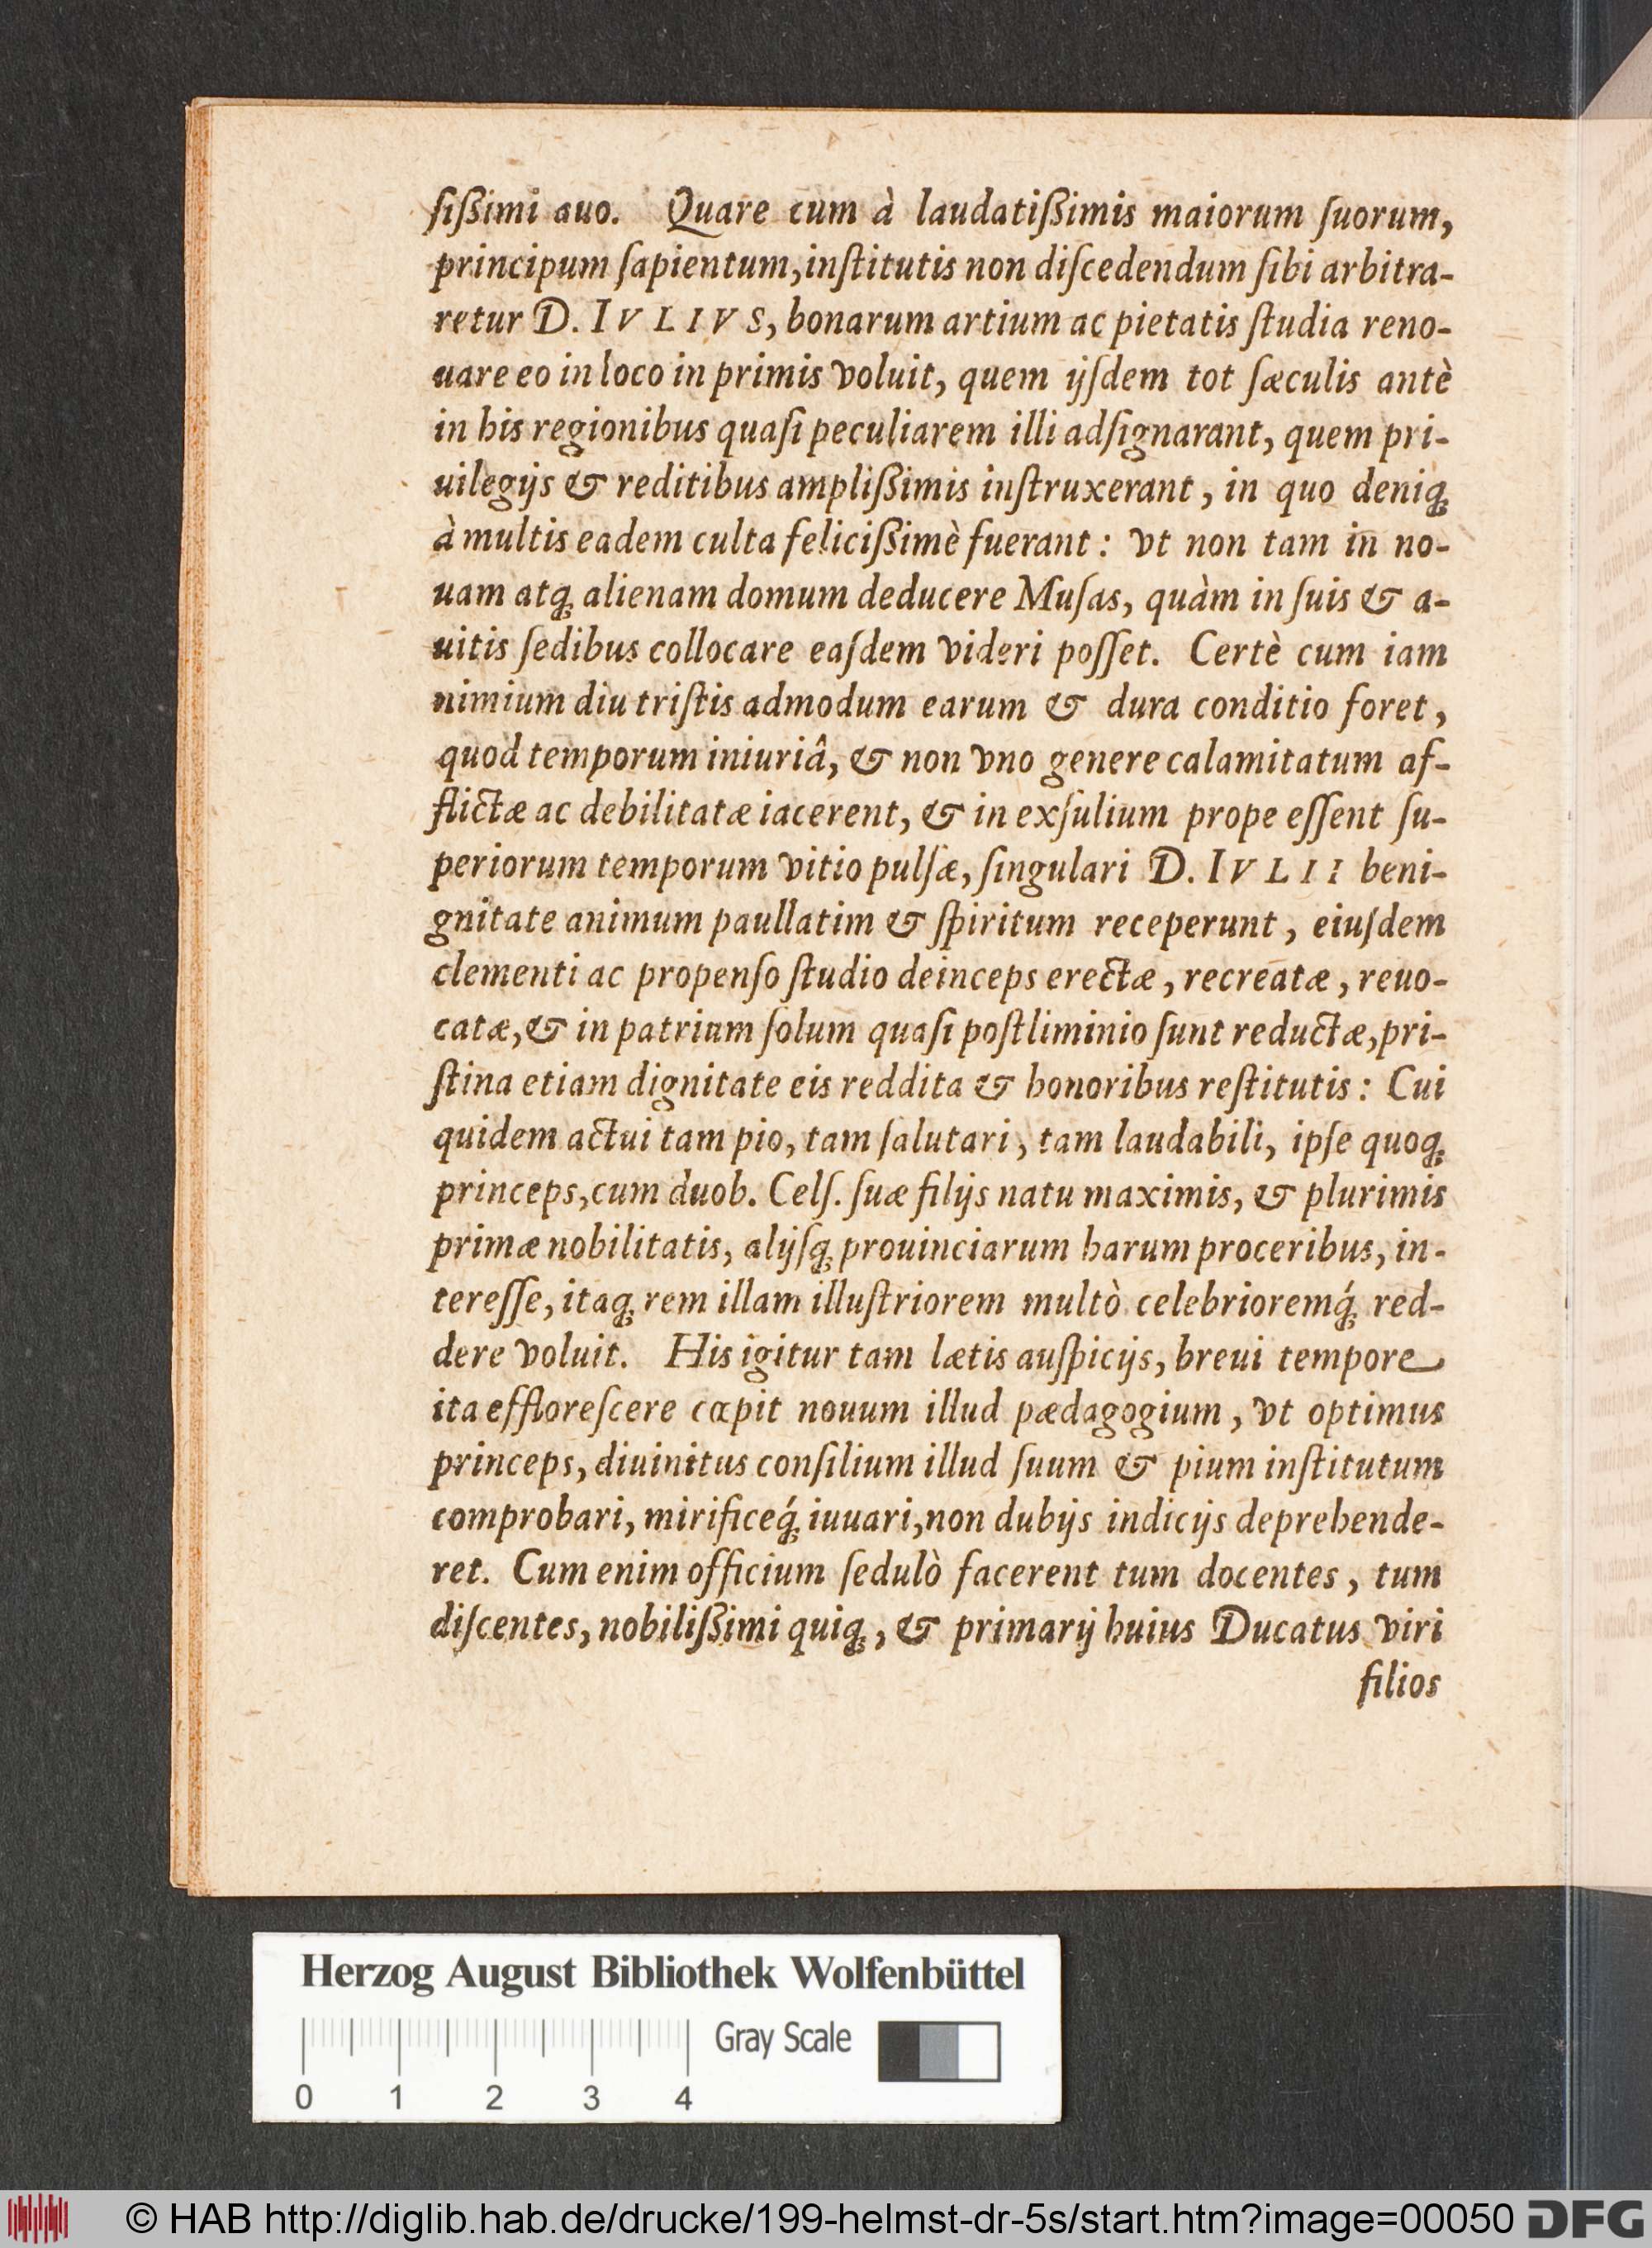 ſiſsimi auo. Quare cum à laudatiſsimis maiorum ſuorum,
principum ſapientum, inſtitutis non diſcedendum ſibi arbitra-
retur D. IVLIVS, bonarum artium ac pietatis ſtudia reno-
uare eo in loco in primis voluit, quem ijſdem tot ſæculis antè
in his regionibus quaſi peculiarem illi adſignarant, quem pri-
uilegijs & reditibus ampliſsimis inſtruxerant, in quo deniq;
à multis eadem culta feliciſsimè fuerant: vt non tam in no-
uam atq; alienam domum deducere Muſas, quàm in ſuis & a-
uitis ſedibus collocare eaſdem videri poſſet. Certè cum iam
nimium diu triſtis admodum earum & dura conditio foret,
quod temporum iniuriâ, & non vno genere calamitatum af-
flictæ ac debilitatæ iacerent, & in exſulium prope eſſent ſu-
periorum temporum vitio pulſæ, ſingulari D. IVLII beni-
gnitate animum paullatim & ſpiritum receperunt, eiuſdem
clementi ac propenſo ſtudio deinceps erectæ, recreatæ, reuo-
catæ, & in patrium ſolum quaſi poſtliminio ſunt reductæ, pri-
ſtina etiam dignitate eis reddita & honoribus reſtitutis: Cui
quidem actui tam pio, tam ſalutari, tam laudabili, ipſe quoq;
princeps, cum duob. Celſ. ſuæ filijs natu maximis, & plurimis
primæ nobilitatis, alijſq; prouinciarum harum proceribus, in-
tereſſe, itaq; rem illam illuſtriorem multò celebrioremq́; red-
dere voluit. His igitur tam lætis auſpicijs, breui tempore
ita effloreſcere cœpit nouum illud pædagogium, vt optimus
princeps, diuinitus conſilium illud ſuum & pium inſtitutum
comprobari, mirificeq́; iuuari, non dubijs indicijs deprehende-
ret. Cum enim officium ſedulò facerent tum docentes, tum
diſcentes, nobiliſsimi quiq;, & primarij huius Ducatus viri
filios
Herzog August Bibliothek Wolfenbüttel
Gray Scale
0 1 2 3 4
© HAB http://diglib.hab.de/drucke/199-helmst-dr-5s/start.htm?image=00050 DFG